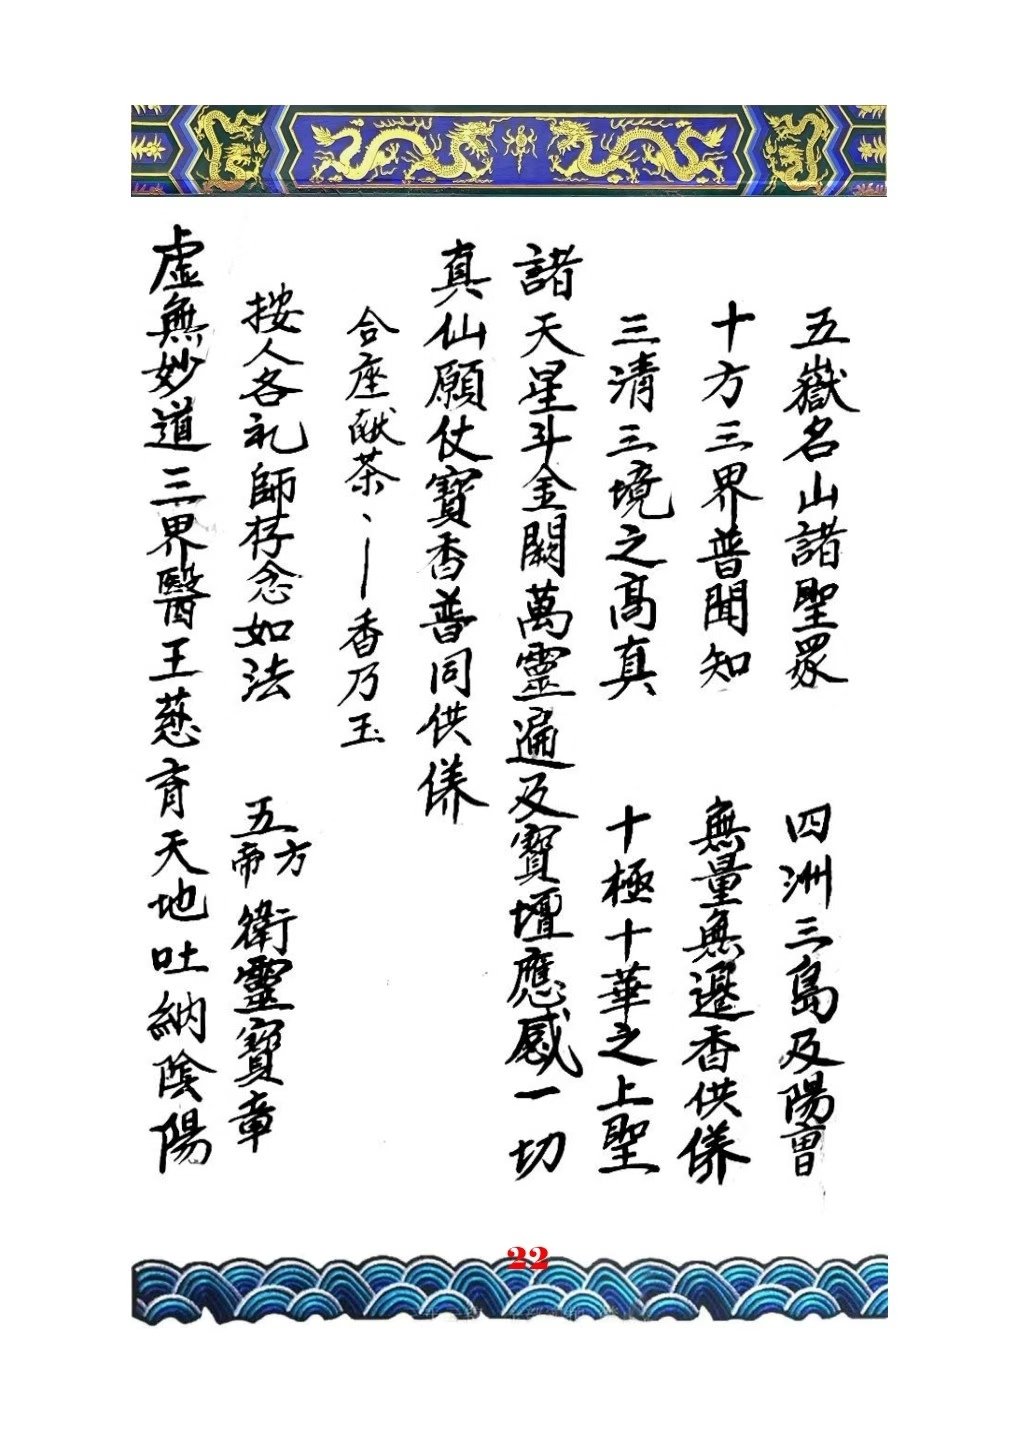 五嶽名山諸聖眾　四洲三島及陽曹
十方三界普聞知　無量無邊香供養
三清三境之高真　十極十華之上聖
諸天星斗金闕萬靈遍及寶壇應感一切
真仙願仗寶香普同供養
合座献茶丶丨香乃玉
按人各礼師存念如法　五方帝衛靈寶章
虛無妙道三界醫王慈育天地吐納陰陽
22